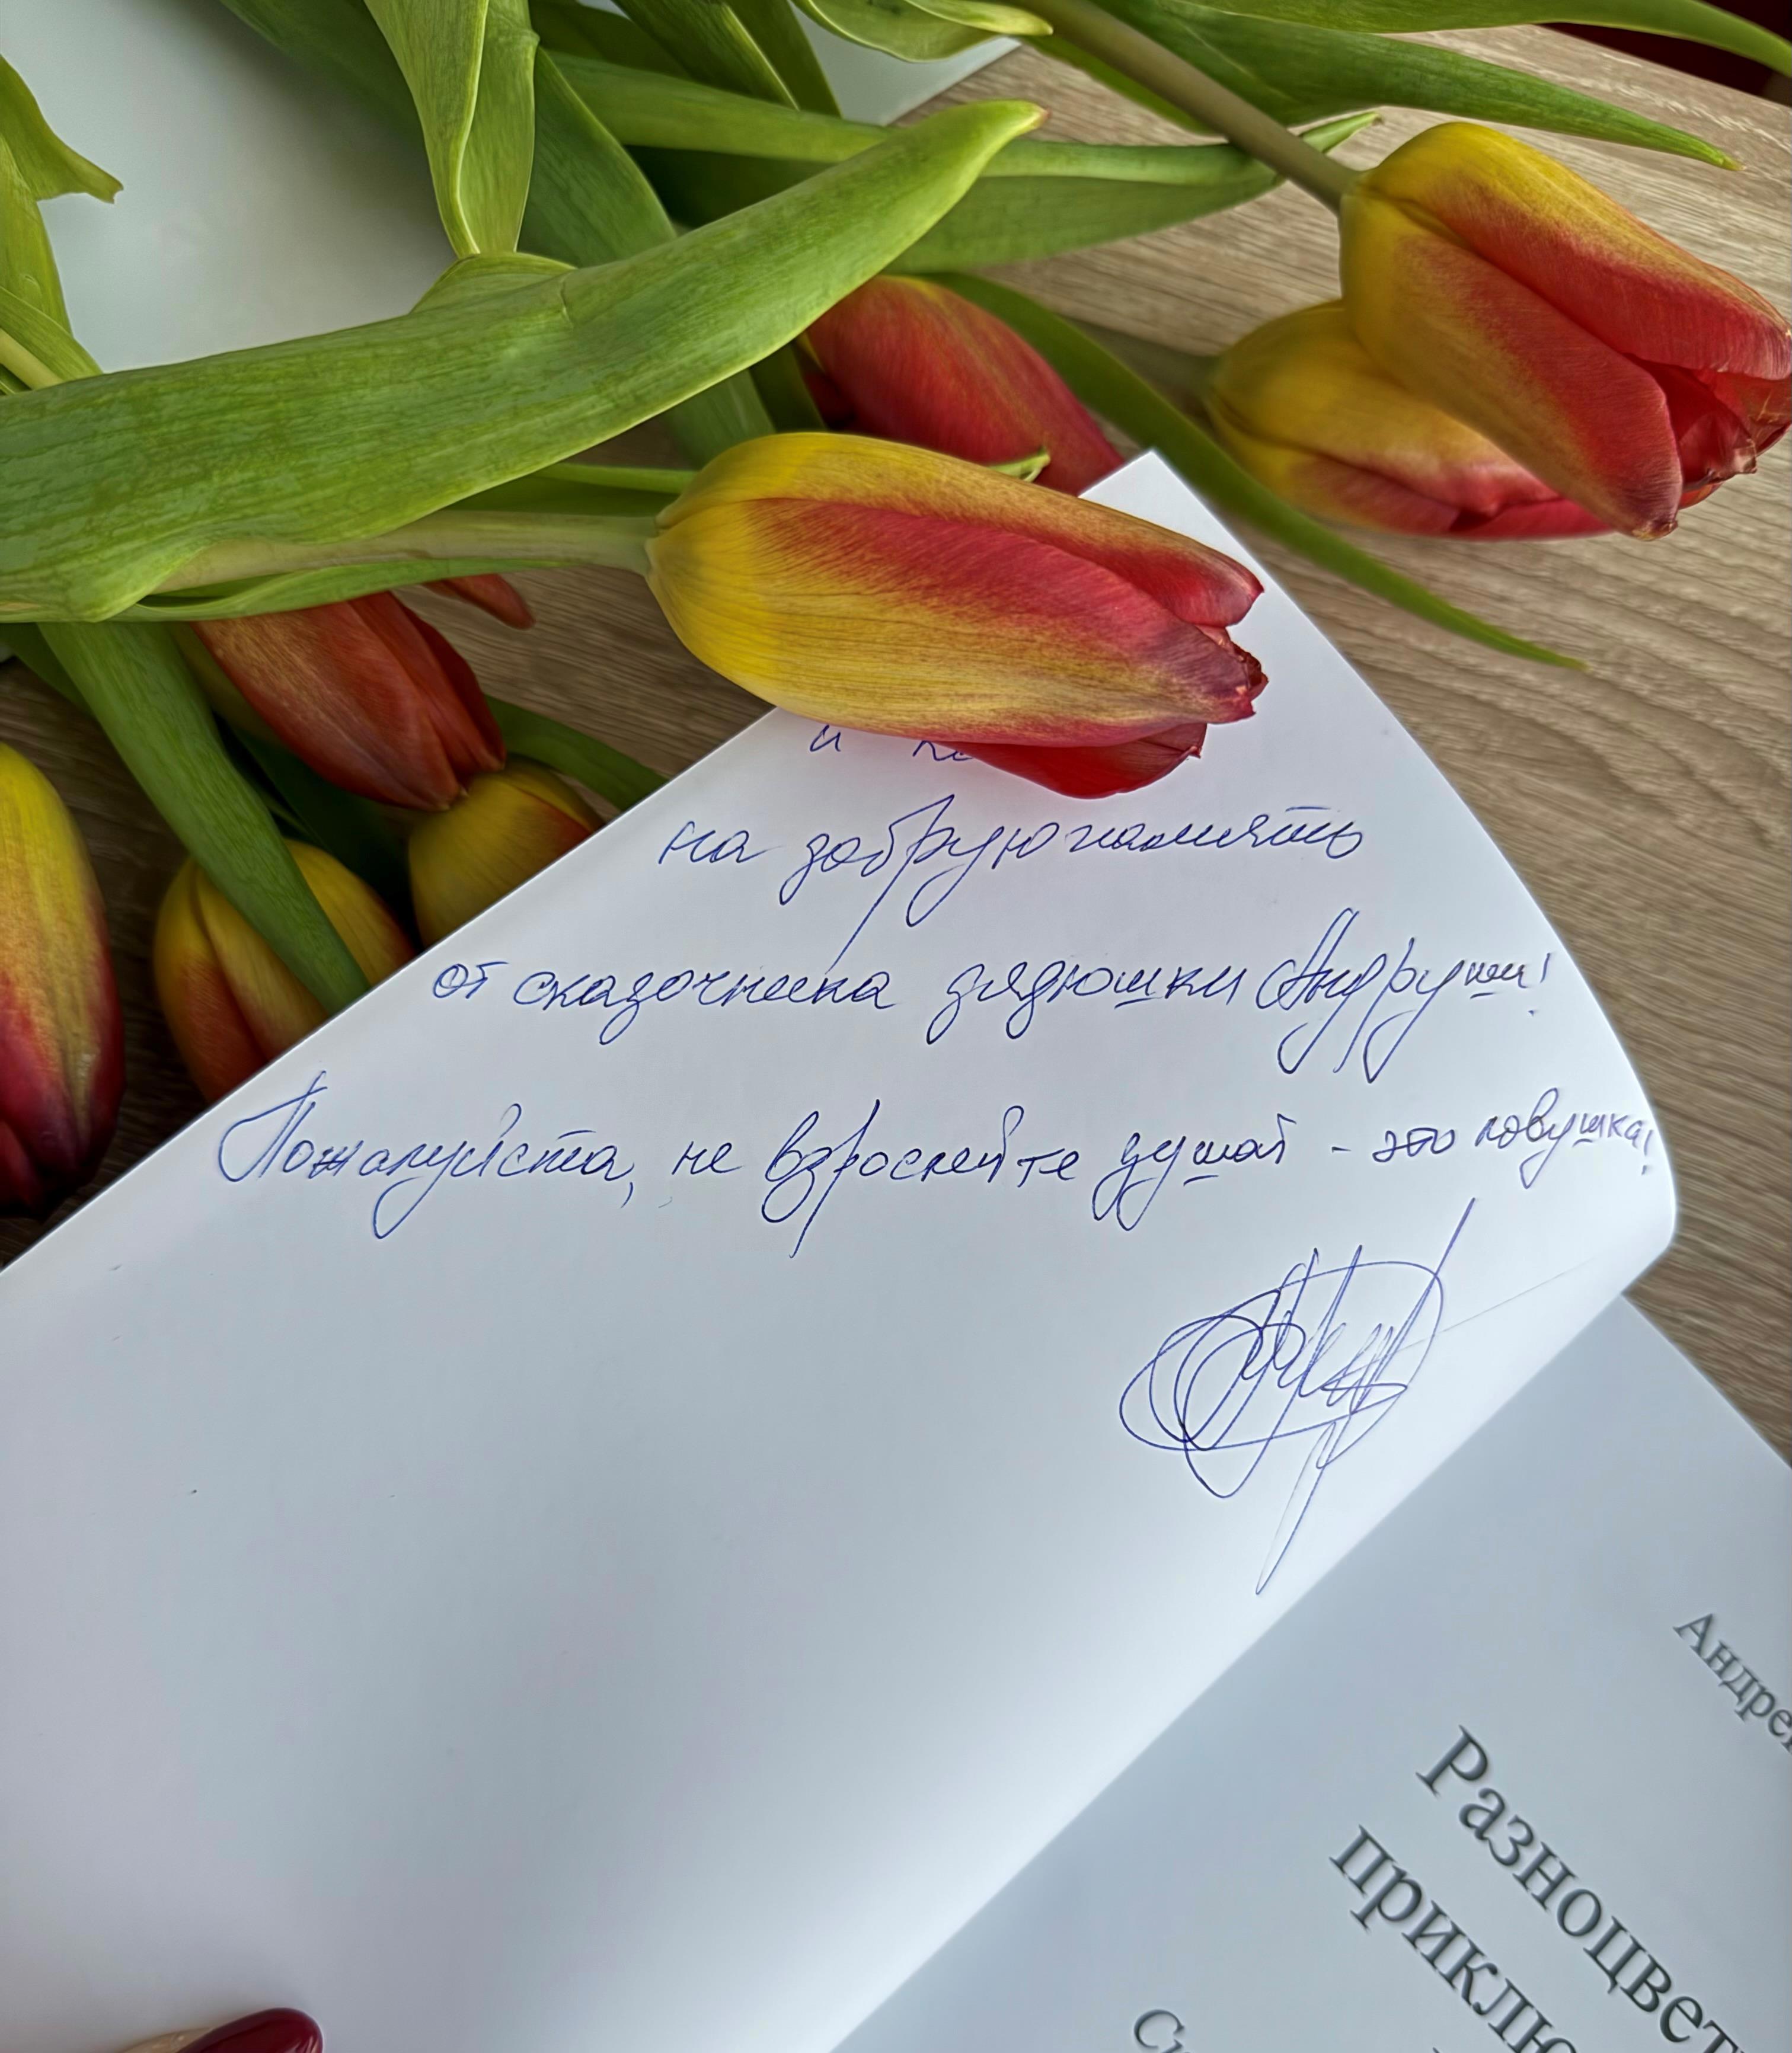 и
на добрую память
от сказочника дядюшки Андруши!
Пожалуйста, не взрослейте душой - это ловушка!
Андрей
Разноцвет
приклю